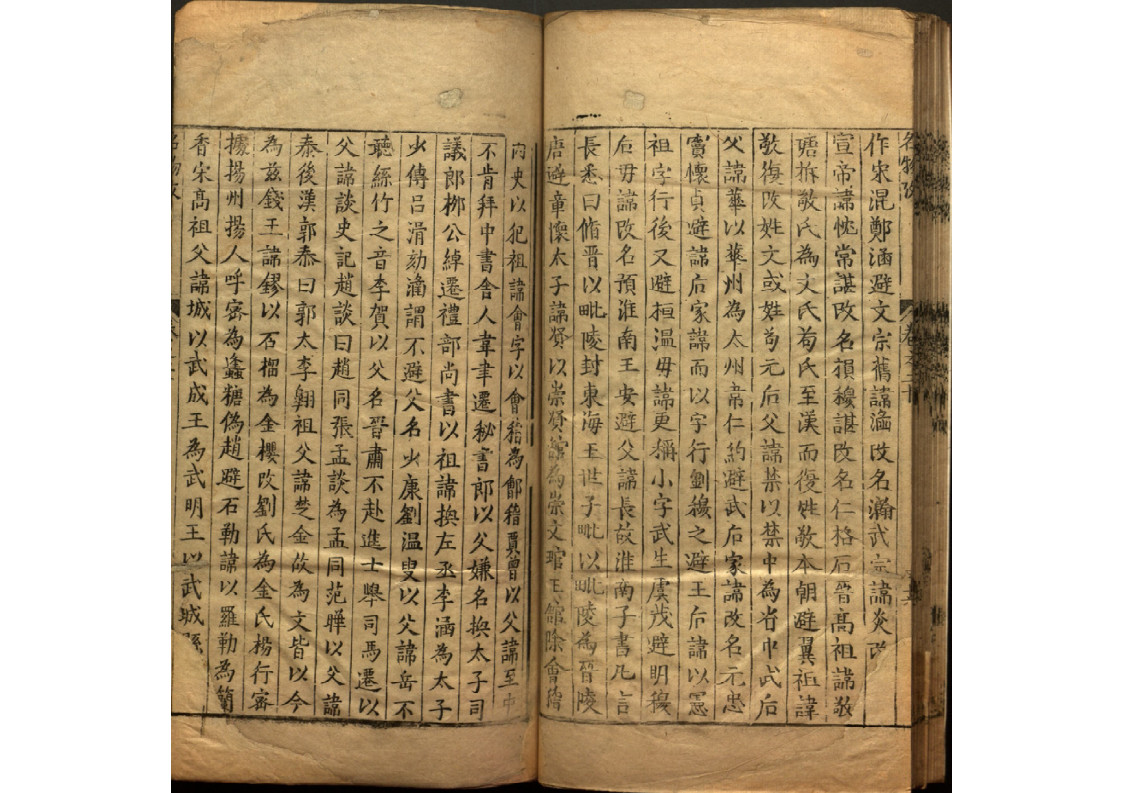 作宋混鄭涵避文宗舊諱涵改名瀚武宗諱炎改
宣帝諱忱常諶改名損穆諶改名仁格石晉高祖諱敬
瑭拆敬氏為文氏苟氏至漢而復姓敬本朝避翼祖諱
敬復改姓文或姓苟元后父諱禁以禁中為省中武后
父諱華以華州為太州韋仁約避武后家諱改名元忠
竇懷貞避諱后家諱而以字行劉穆之避王后諱以憲
祖字行後又避桓溫母諱更稱小字武生虞茂避明穆
后毋諱改名預淮南王安避父諱長故淮南子書凡言
長悉曰脩晉以毗陵封東海王世子毗以毗陵為晉陵
唐避章懷太子諱賢以崇賢館為崇文館王舘除會稽
內史以犯祖諱會字以會稽為鄶稽賈曾以父諱至中
不肯拜中書舍人韋聿遷秘書郎以父嫌名換太子司
議郎柳公綽遷禮部尚書以祖諱換左丞李涵為太子
少傅呂渭劾涵謂不避父名少康劉溫叟以父諱岳不
聽絲竹之音李賀以父名晉肅不赴進士舉司馬遷以
父諱談史記趙談曰趙同張孟談為孟同范曄以父諱
泰後漢郭泰曰郭太李翱祖父諱楚金故為文皆以今
為茲錢王諱鏐以石榴為金櫻改劉氏為金氏楊行密
據揚州揚人呼蜜為蠭糖偽趙避石勒諱以羅勒為蘭
香宋高祖父諱城以武成王為武明王以武城縣